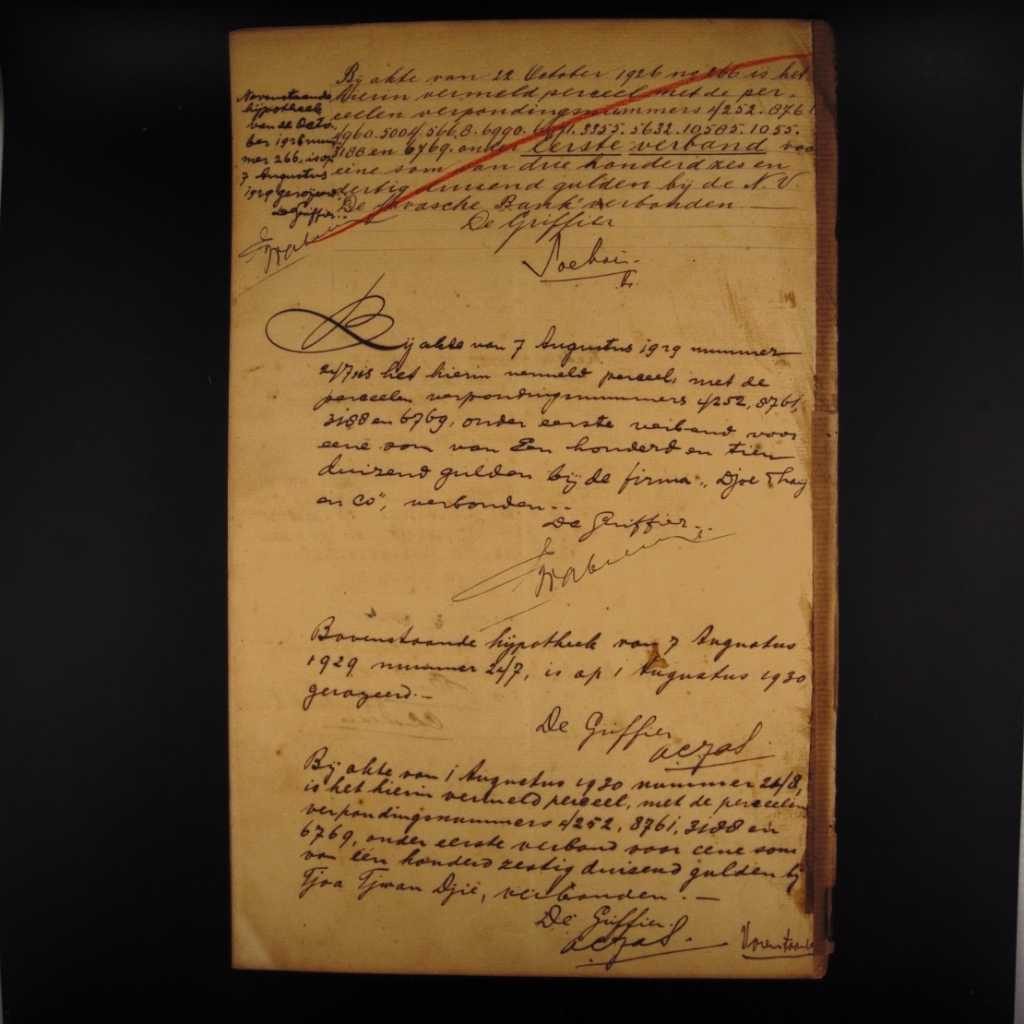 Bij akte van 22 October 1926 no 266 is het
hierin vermeld perceel met de per-
ceelen verpondingsnummers 4252. 8761
4960. 5004. 5668. 6990. 3355. 5632. 10585. 1055.
3188 en 6769. onder eerste verband voor
eene som van drie honderd zes en
dertig duisend gulden bij de N. V.
"De Javasche Bank" verbonden
De Griffier
Nevenstaande
hypotheek
van 22 Octo
ber 1926 num
mer 266, is op
7 Augustus
1929 geroyeerd
De Griffier
Bij akte van 7 Augustus 1929 nummer
24/7 is het hierin vermeld perceel, met de
perceelen verpondingsnummers 4252, 8761,
3188 en 6769, onder eerste verband voor
eene som van Een honderd en tien
duizend gulden bij de firma "Djoe Thay
en Co", verbonden..
De Griffier..
Bovenstaande hypotheek van 7 Augustus
1929 nummer 24/7, is op 1 Augustus 1930
geroyeerd.-
De Griffier
Bij akte van 1 Augustus 1930 nummer 24/8,
is het hierin vermeld perceel, met de perceelen
verpondingsnummers 4252, 8761, 3188 en
6769, onder eerste verband voor eene som
van één honderd zestig duisend gulden bij
Tjoa Tjwan Djie, verbonden. -
De Griffier.